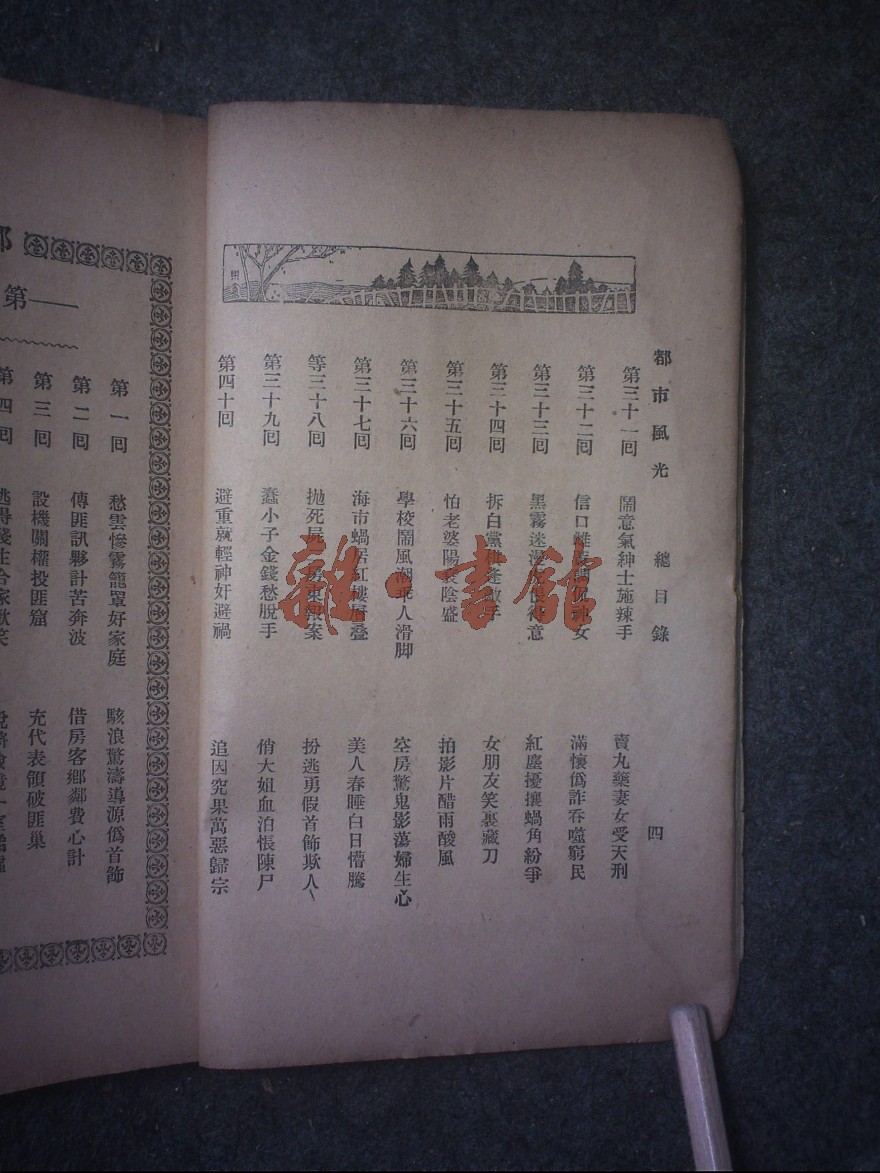 都市風光 總目錄 四
第三十一回 鬧意氣紳士施辣手 賣丸藥妻女受天刑
第三十二回 信口雌黃 神女 滿懷僞詐吞噬窮民
第三十三回 黑霧迷漫 得意 紅塵擾攘蝸角紛爭
第三十四回 拆白黨 敵手 女朋友笑裏藏刀
第三十五回 怕老婆陽衰陰盛 拍影片醋雨酸風
第三十六回 學校鬧風潮乖人滑脚 空房驚鬼影蕩婦生心
第三十七回 海市蝸居紅樓層叠 美人春睡白日懵騰
等三十八回 拋死屍二房東報案 扮逃勇假首飾欺人
第三十九回 蠢小子金錢愁脫手 俏大姐血泊悵陳尸
第四十回 避重就輕神奸避禍 追因究果萬惡歸宗
雜·書館
第
第一回 愁雲慘霧籠罩好家庭 駭浪驚濤導源僞首飾
第二回 傳匪訊夥計苦奔波 借房客鄉鄰費心計
第三回 設機關權投匪窟 充代表領破匪巢
第四回